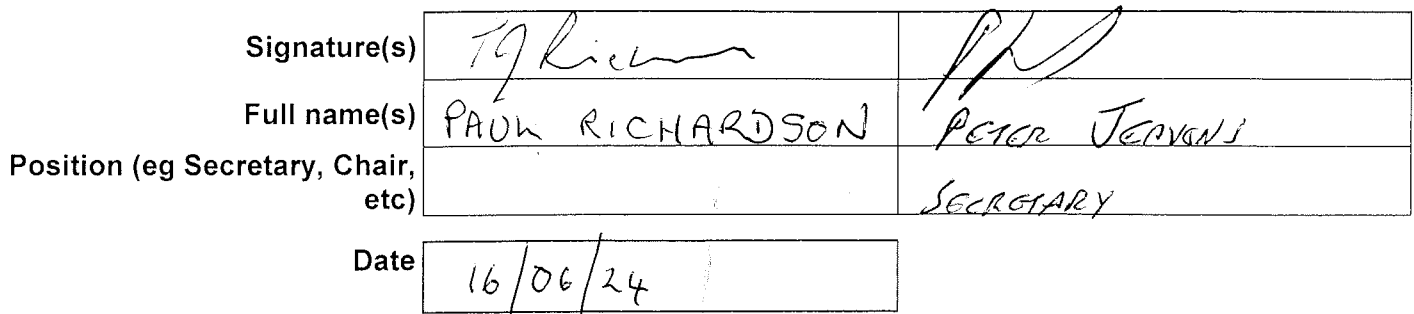 Signature(s)
Full name(s) PAUL RICHARDSON PETER JERVONS
Position (eg Secretary, Chair,
etc) SECRETARY
Date 16/06/24